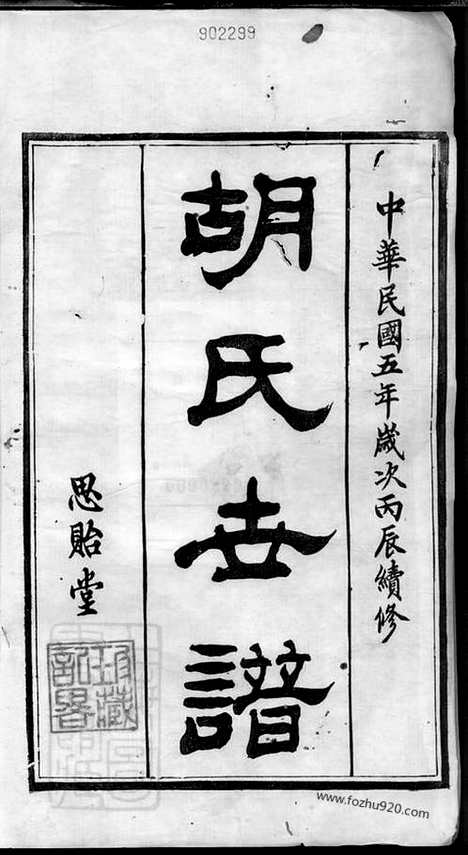 902299
中華民國五年歲次丙辰續修
胡氏世譜
思貽堂
www.fozhu920.com